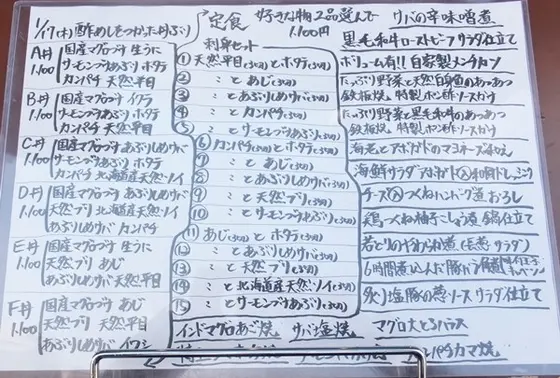 1/17(木) 酢めしをつかった丼ぶり
A丼 1.100
国産マグロづけ 生うに
サーモンづけあぶり ホタテ
カンパチ 天然平目
B丼 1.100
国産マグロづけ イクラ
サーモンづけあぶり ホタテ
カンパチ 天然平目
C丼 1.100
国産マグロづけ あぶりしめサバ
サーモンづけあぶり ホタテ
天然ブリ 北海道産天然ソイ
D丼 1.100
国産マグロづけ あぶりしめサバ
天然ブリ 北海道産天然ソイ
あぶりしめサバ カンパチ
E丼 1.100
国産マグロづけ 生うに
天然ブリ あじ
あぶりしめサバ 天然平目
F丼 1.100
国産マグロづけ あじ
天然ブリ 天然平目
あぶりしめサバ イワシ
定食 好きな物2品選んで 1.100円
刺身セット
① 天然平目(3切)とホタテ(3切)
② 〃 とあじ(3切)
③ 〃 とあぶりしめサバ(3切)
④ 〃 とカンパチ(3切)
⑤ 〃 とサーモンづけあぶり(3切)
⑥ カンパチ(3切)とホタテ(3切)
⑦ 〃 とあじ(3切)
⑧ 〃 とあぶりしめサバ(3切)
⑨ 〃 と天然ブリ(3切)
⑩ 〃 とサーモンづけあぶり(3切)
⑪ あじ(3切)とホタテ(3切)
⑫ 〃 とあぶりしめサバ(3切)
⑬ 〃 と天然ブリ(3切)
⑭ 〃 と北海道産天然ソイ(3切)
⑮ 〃 とサーモンづけあぶり(3切)
サバの辛味噌煮
黒毛和牛ローストビーフ サラダ仕立て
ボリューム有!!自家製メンチカツ
たっぷり野菜と天然白身魚のあつあつ
鉄板焼 特製ポン酢ソースがけ
たっぷり野菜と黒毛和牛のあつあつ
鉄板焼 特製ポン酢ソースがけ
海老とアボガドのマヨネーズ和え
海鮮サラダ アボガド入 和風ドレッシング
チーズ入つくねハンバーグ 道おろし
鶏つくね柚子こしょう煮 鍋仕立て
若どりのやわらか煮
6時間煮込んだ豚バラ角煮
炙り塩豚の葱ソース サラダ仕立て
インドマグロあご焼 サバ塩焼 マグロ大とろハラス
カマ焼